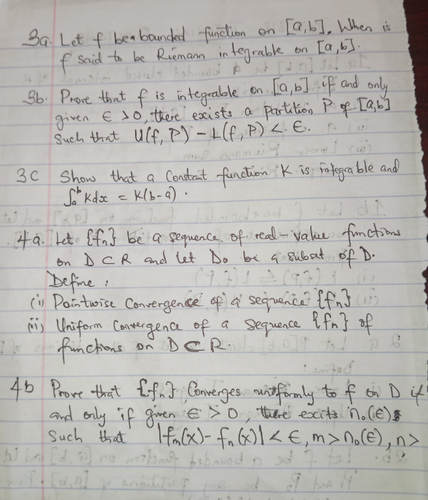 3a. Let f be a bounded function on [a,b]. When is
f said to be Riemann integrable on [a,b].
3b. Prove that f is integrable on [a,b] if and only
given ϵ >0, there exists a partition P of [a,b]
such that U(f,P) - L(f,P) < ϵ.
3c Show that a constant function K is integrable and
∫ₐᵇ Kdx = K(b-a).
4a. Let {fn} be a sequence of real-value functions
on D⊂R and let Do be a subset of D.
Define:
(i) Pointwise Convergence of a sequence {fn}
(ii) Uniform Convergence of a sequence {fn} of
functions on D⊂R
4b Prove that {fn} Converges uniformly to f on D if
and only if given ϵ > 0, there exits no(ϵ)
such that |fn(x)-fn(x)| < ϵ, m>no(ϵ), n>